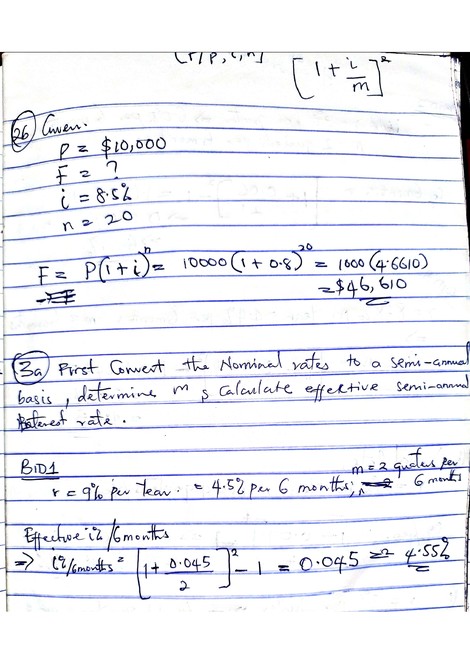 [1 + i/m]²
(26) Given:
P = $10,000
F = ?
i = 8.5%
n = 20
F = P(1+i)ⁿ = 10000(1+0.8)²⁰ = 1000(4.6610)
= $46,610
(3a) First Convert the Nominal rates to a semi-annual
basis, determine m & Calculate effective semi-annual
interest rate.
BID 1
r = 9% per Year. = 4.5% per 6 months; m = 2 quaters per 6 months
Effective i%/6months
=> i%/6months = [1 + 0.045/2]² - 1 = 0.045 => 4.55%